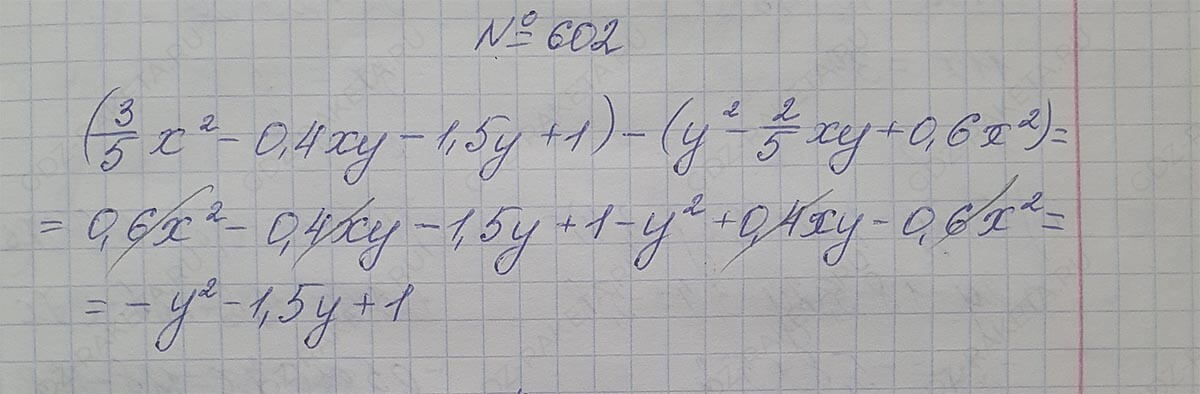 № 602
(3/5 x² - 0,4xy - 1,5y + 1) - (y² - 2/5 xy + 0,6x²) =
= 0,6x² - 0,4xy - 1,5y + 1 - y² + 0,4xy - 0,6x² =
= - y² - 1,5y + 1